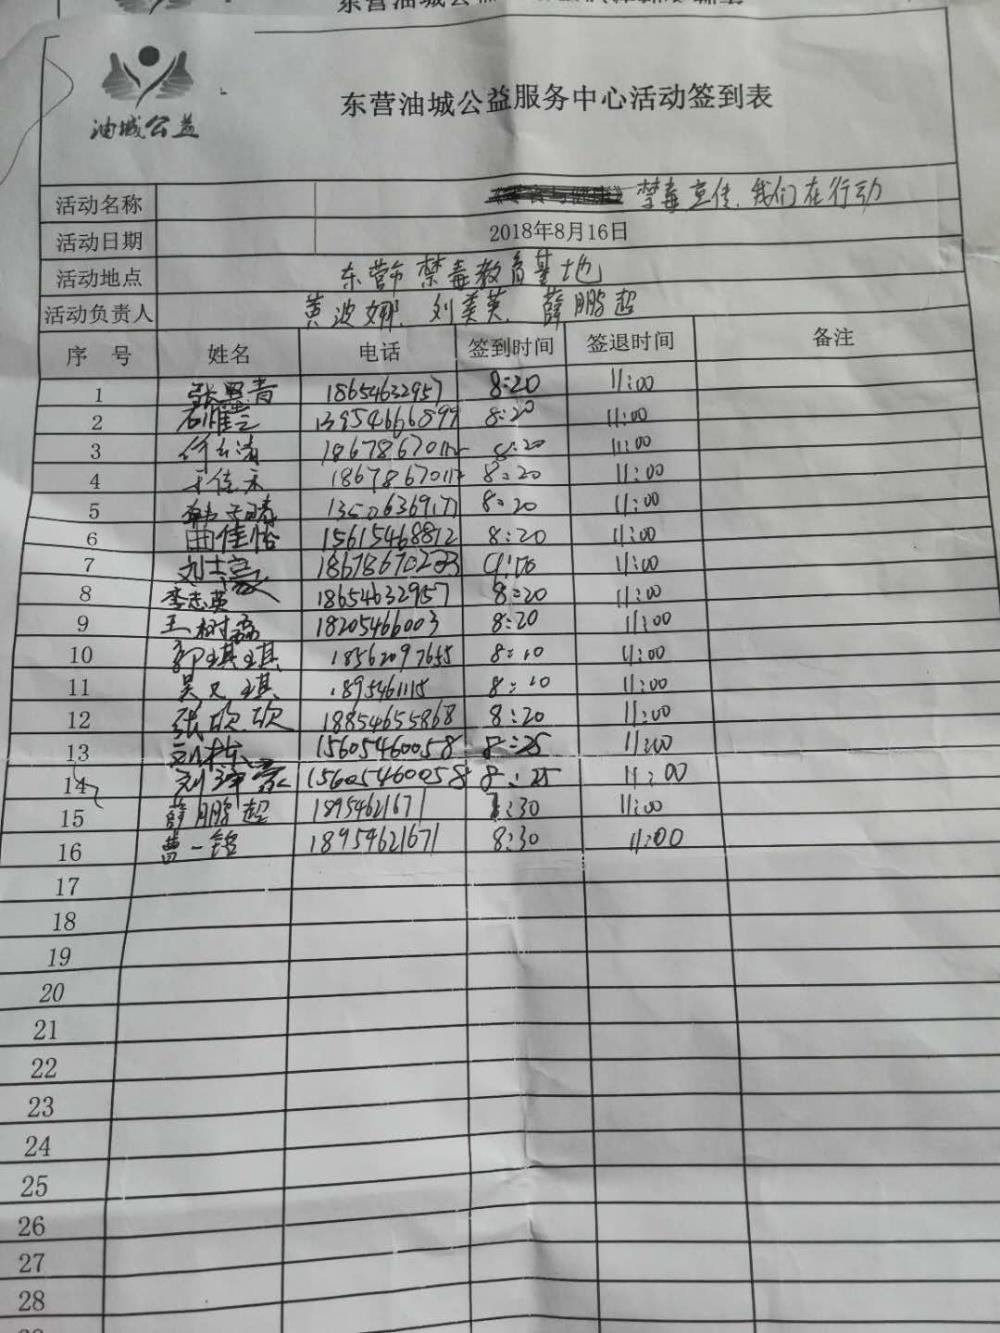 油城公益
东营油城公益服务中心活动签到表
活动名称 禁毒宣传,我们在行动
活动日期 2018年8月16日
活动地点 东营市禁毒教育基地
活动负责人 黄波娜 刘美英 薛鹏超
序 号 姓名 电话 签到时间 签退时间 备注
1 18654632957 8:20 11:00
2 13954666899 8:20 11:00
3 8:20 11:00
4 8:20 11:00
5 8:20 11:00
6 田佳怡 15615468812 8:20 11:00
7 刘士豪 18678670223 11:00
8 李志英 18654632957 8:20 11:00
9 18205466003 8:20 11:00
10 郭琪琪 18562097655 8:10 11:00
11 1895461115 8:10 11:00
12 张欣欣 18854655868 8:20 11:00
13 刘栋 15605460058 8:25 11:00
14 15605460058 8:25 11:00
15 薛鹏超 18954621671 8:30 11:00
16 曹一铭 18954621671 8:30 11:00
17
18
19
20
21
22
23
24
25
26
27
28